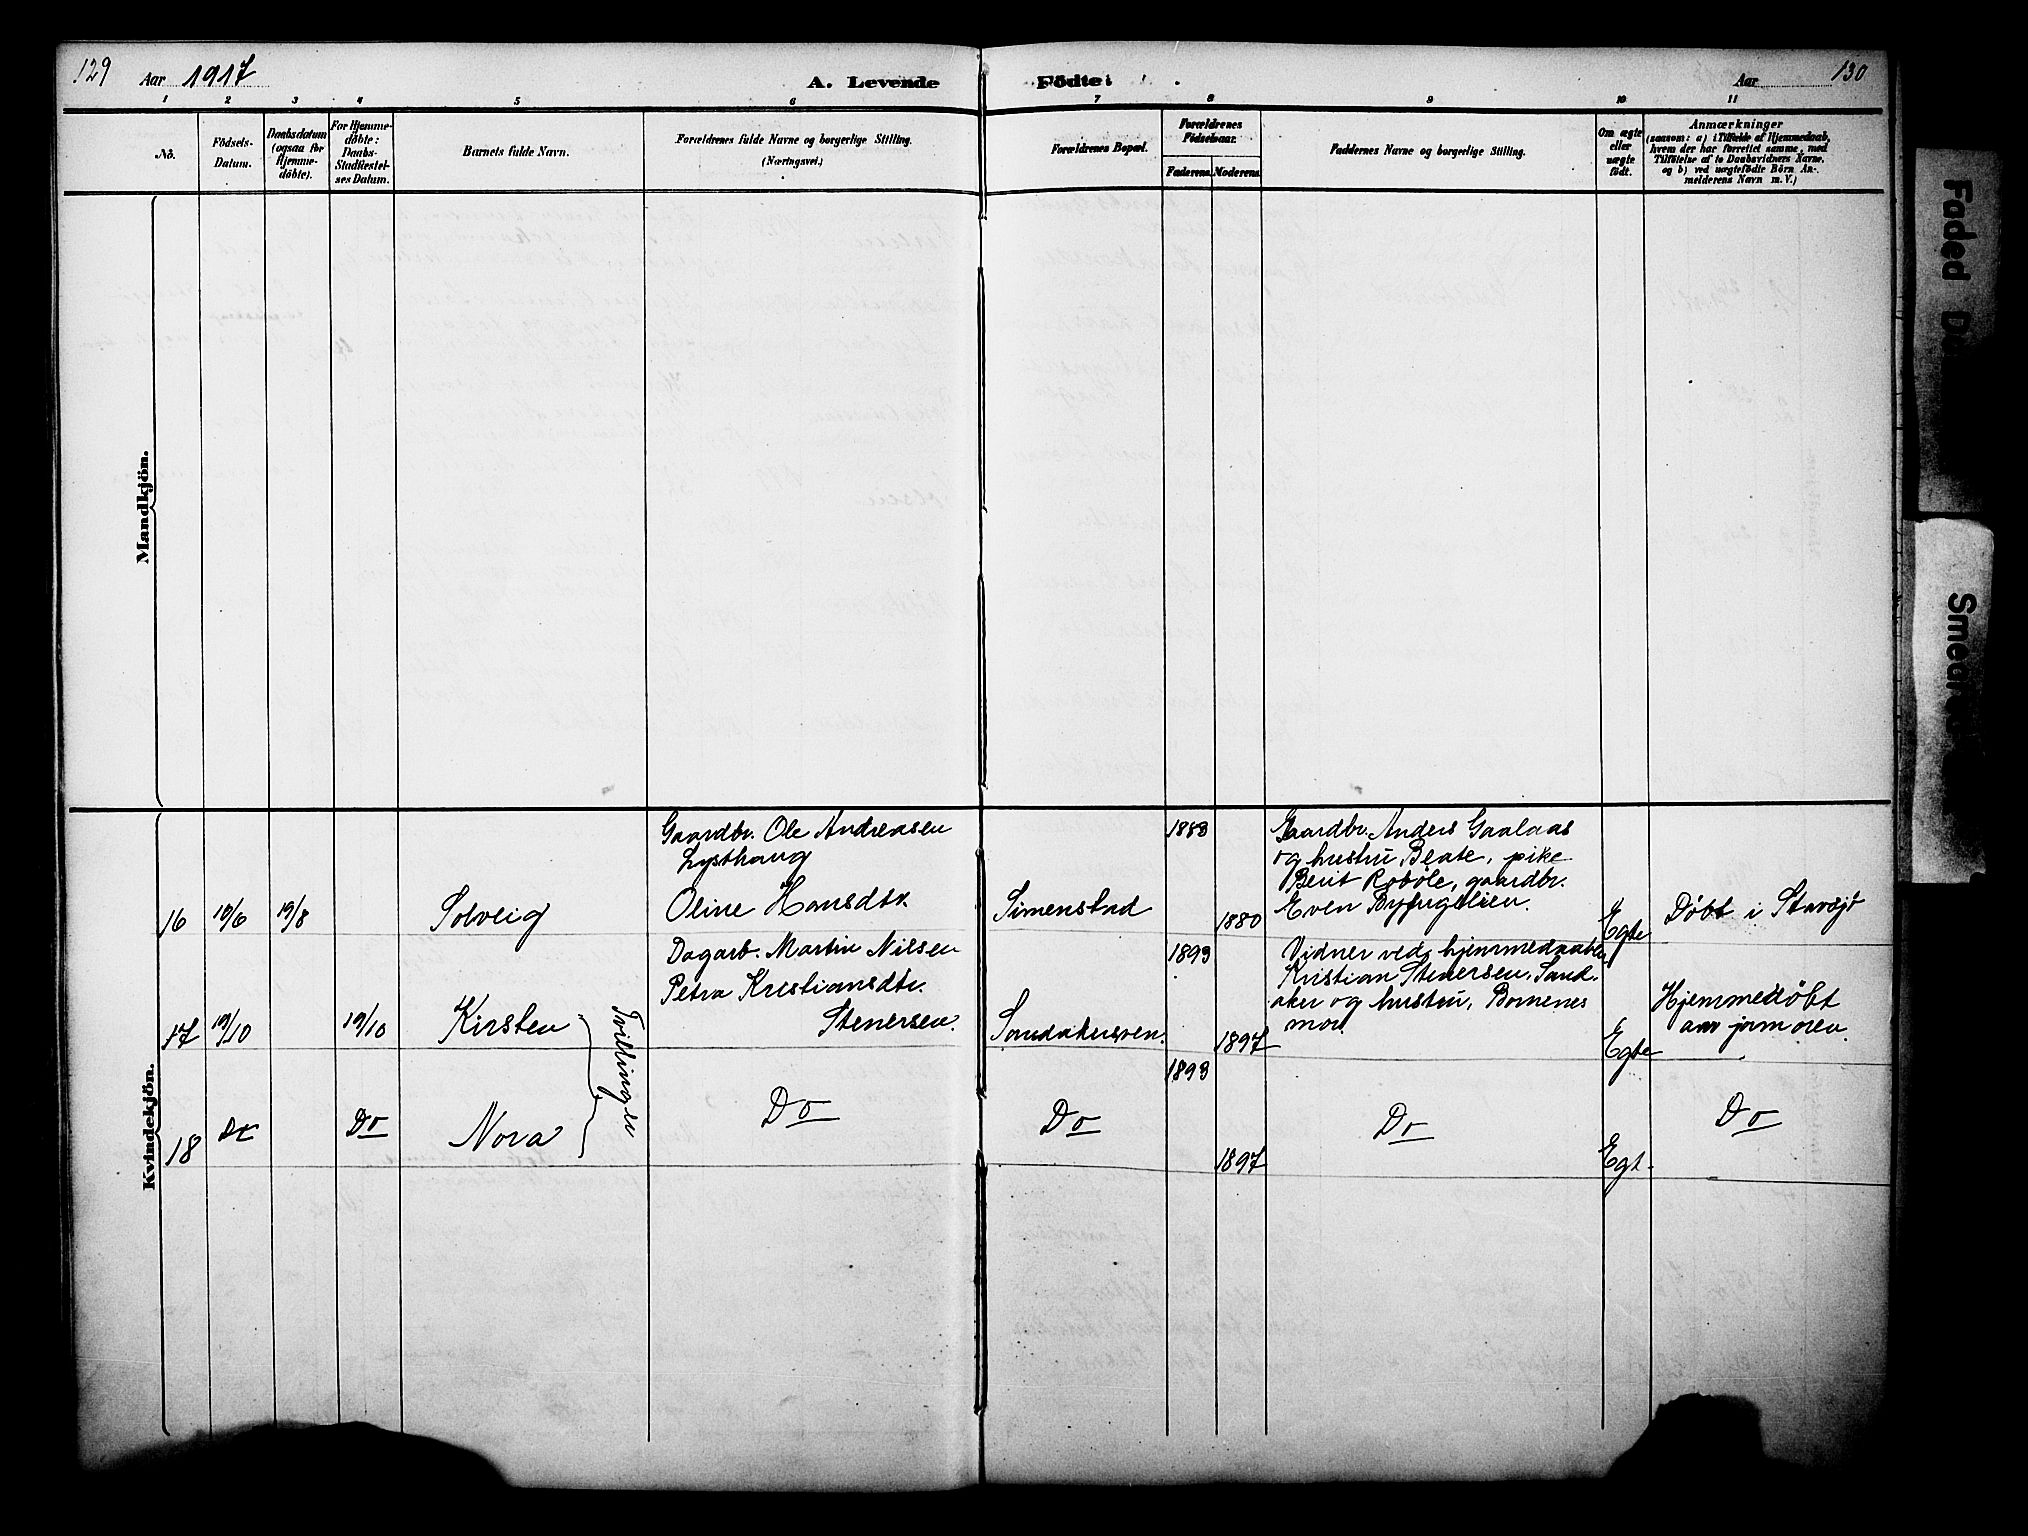 129
Aar 1917
A. Levende Födte:
Aar
130
1 2 3 4 5 6 7 8 9 10 11
No.
Födsels-
Datum.
Daabsdatum
(ogsaa for
Hjemme-
döbte).
For Hjemme-
döbte:
Daabs-
Stadfæstel-
ses Datum.
Barnets fulde Navn.
Forældrenes fulde Navne og borgerlige Stilling.
(Næringsvei.)
Forældrenes Bopæl.
Forældrenes
Födselsaar.
Faderens. Moderens.
Faddernes Navne og borgerlige Stilling.
Om ægte
eller
uægte
födt.
Anmærkninger
(saasom: a) i Tilfælde af Hjemmedaab,
hvem der har forrettet samme, med
Tilföielse af to Daabsvidners Navne,
og b) ved uægtefödte Börn An-
melderens Navn m. V.)
Mandkjön.
Kvindekjön.
16
19/6
19/8
Solveig
Gaardbr. Ole Andreasen
Lysthaug
Oline Hansdtr.
Simenstad
1883
1880
Gaardbr. Anders Gaalaas
og hustru Beate, pike
Berit Robøle, gaardbr.
Even Byfuglien.
Egte
Døbt i Stavsjø
17
19/10
19/10
Kirsten
Tvillinger
Dagarb. Martin Nilsen
Petra Kristiansdtr.
Stenersen.
Sandakersven.
1893
1897
Vidner ved hjemmedaaben
Kristian Stenersen, Sand-
aker og hustru, Barnenes
mor
Egte
Hjemmedøbt
av jormoren
18
Do
Do
Nora
Do
Do
1893
1897
Do
Egt.
Do
Faded
Smed